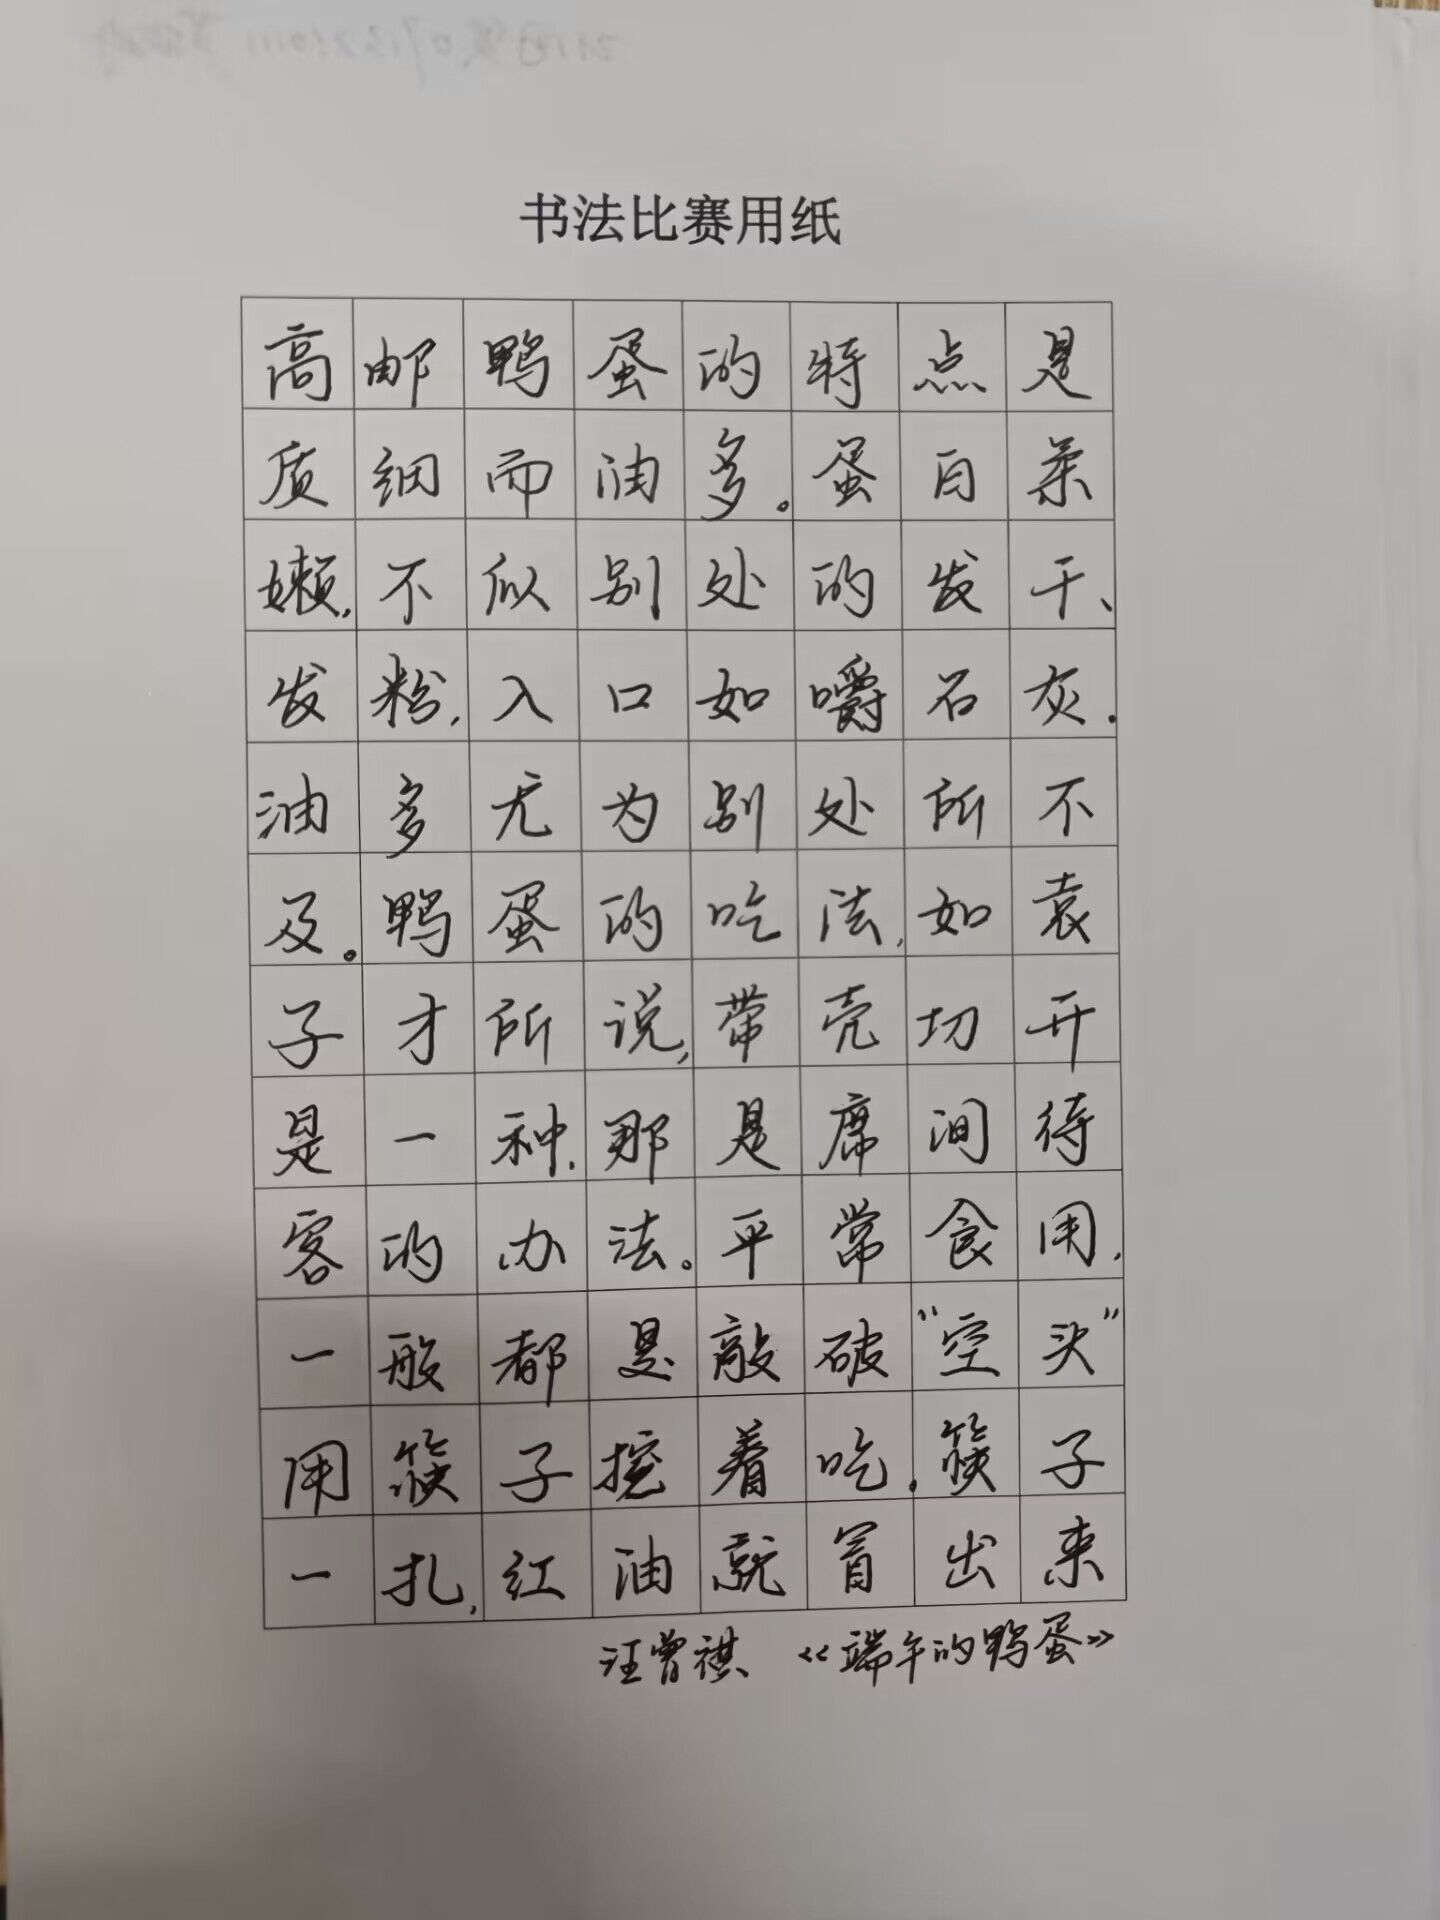 书法比赛用纸
高邮鸭蛋的特点是
质细而油多。蛋白柔
嫩,不似别处的发干、
发粉,入口如嚼石灰.
油多尤为别处所不
及。鸭蛋的吃法,如袁
子才所说,带壳切开
是一种.那是席间待
客的办法。平常食用,
一般都是敲破“空头”
用筷子挖着吃.筷子
一扎,红油就冒出来
汪曾祺 《端午的鸭蛋》